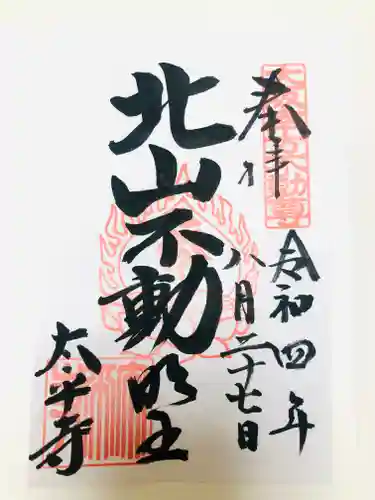 奉拝
令和四年
八月二十七日
北山不動明王
太平寺